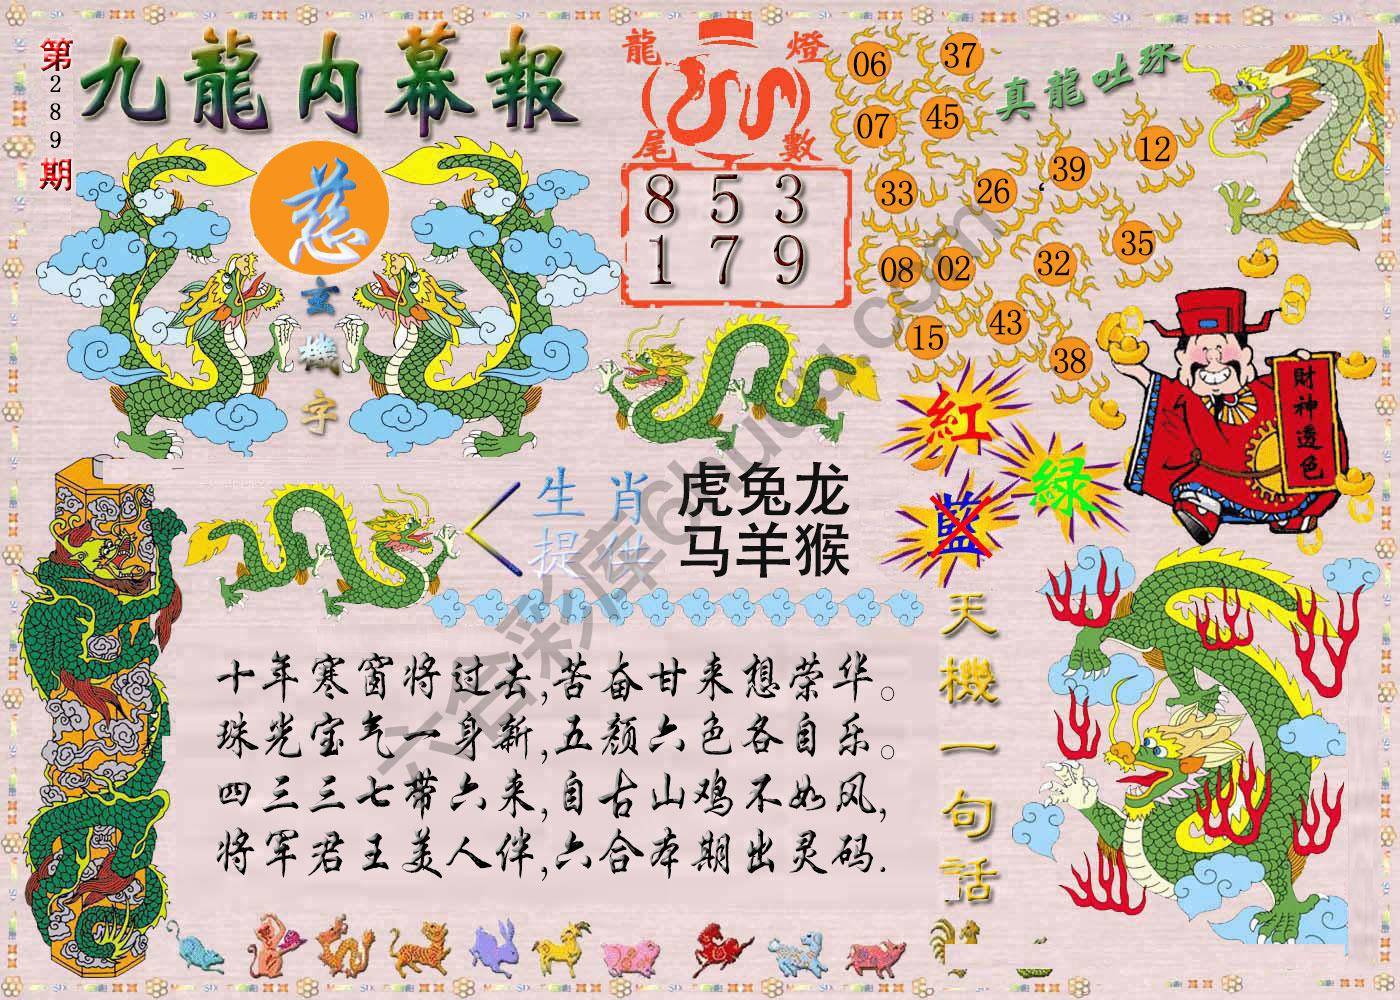 第289期
九龍内幕報
慈
玄機字
龍燈
尾數
8 5 3
1 7 9
真龍吐珠
06
37
07
45
33
26
39
12
08
02
32
35
15
43
38
財神透色
紅
藍
绿
生肖
提供
虎兔龙
马羊猴
十年寒窗将过去,苦奋甘来想荣华。
珠光宝气一身新,五颜六色各自乐。
四三三七带六来,自古山鸡不如风,
将军君王美人伴,六合本期出灵码.
天機一句話
六合彩库6huuu.com